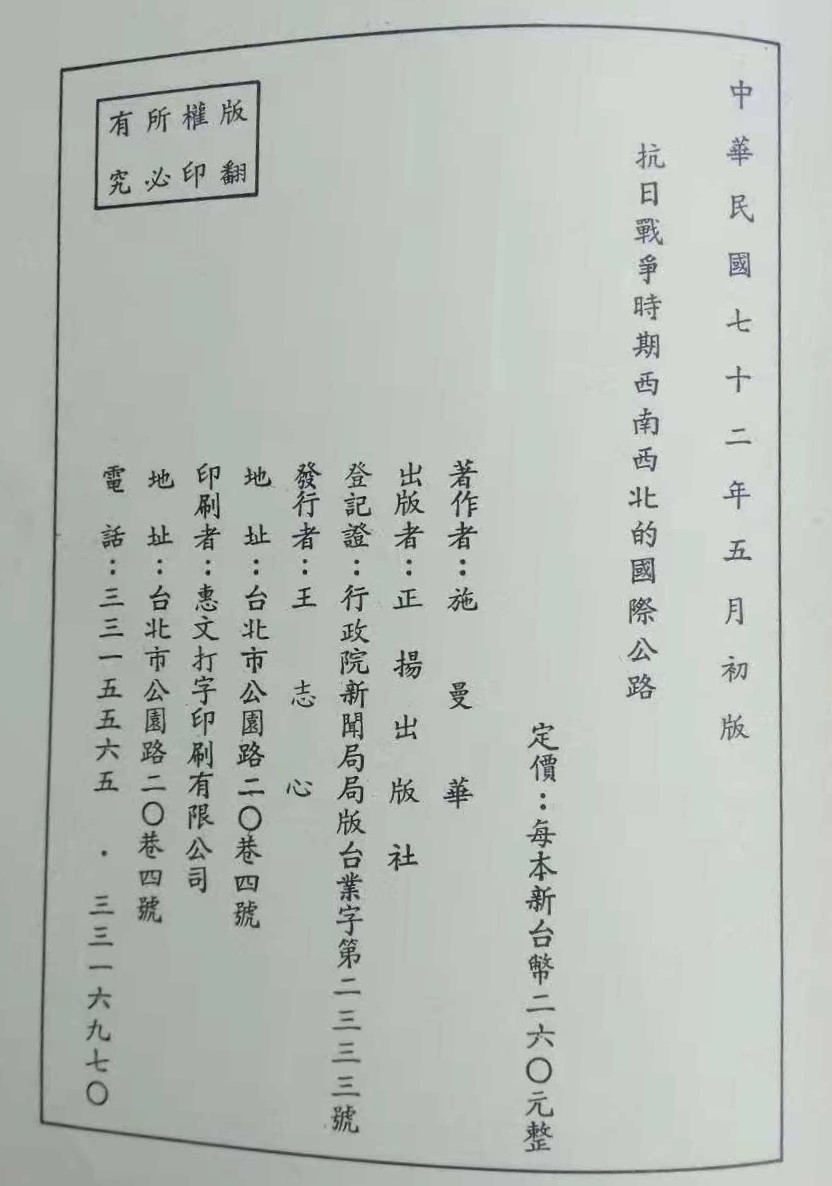 中華民國七十二年五月初版
抗日戰爭時期西南西北的國際公路
定價：每本新台幣二六〇元整
著作者：施曼華
出版者：正揚出版社
登記證：行政院新聞局局版台業字第二三三三號
發行者：王志心
地址：台北市公園路二〇巷四號
印刷者：惠文打字印刷有限公司
地址：台北市公園路二〇巷四號
電話：三三一五五六五．三三一六九七〇
版權所有
翻印必究